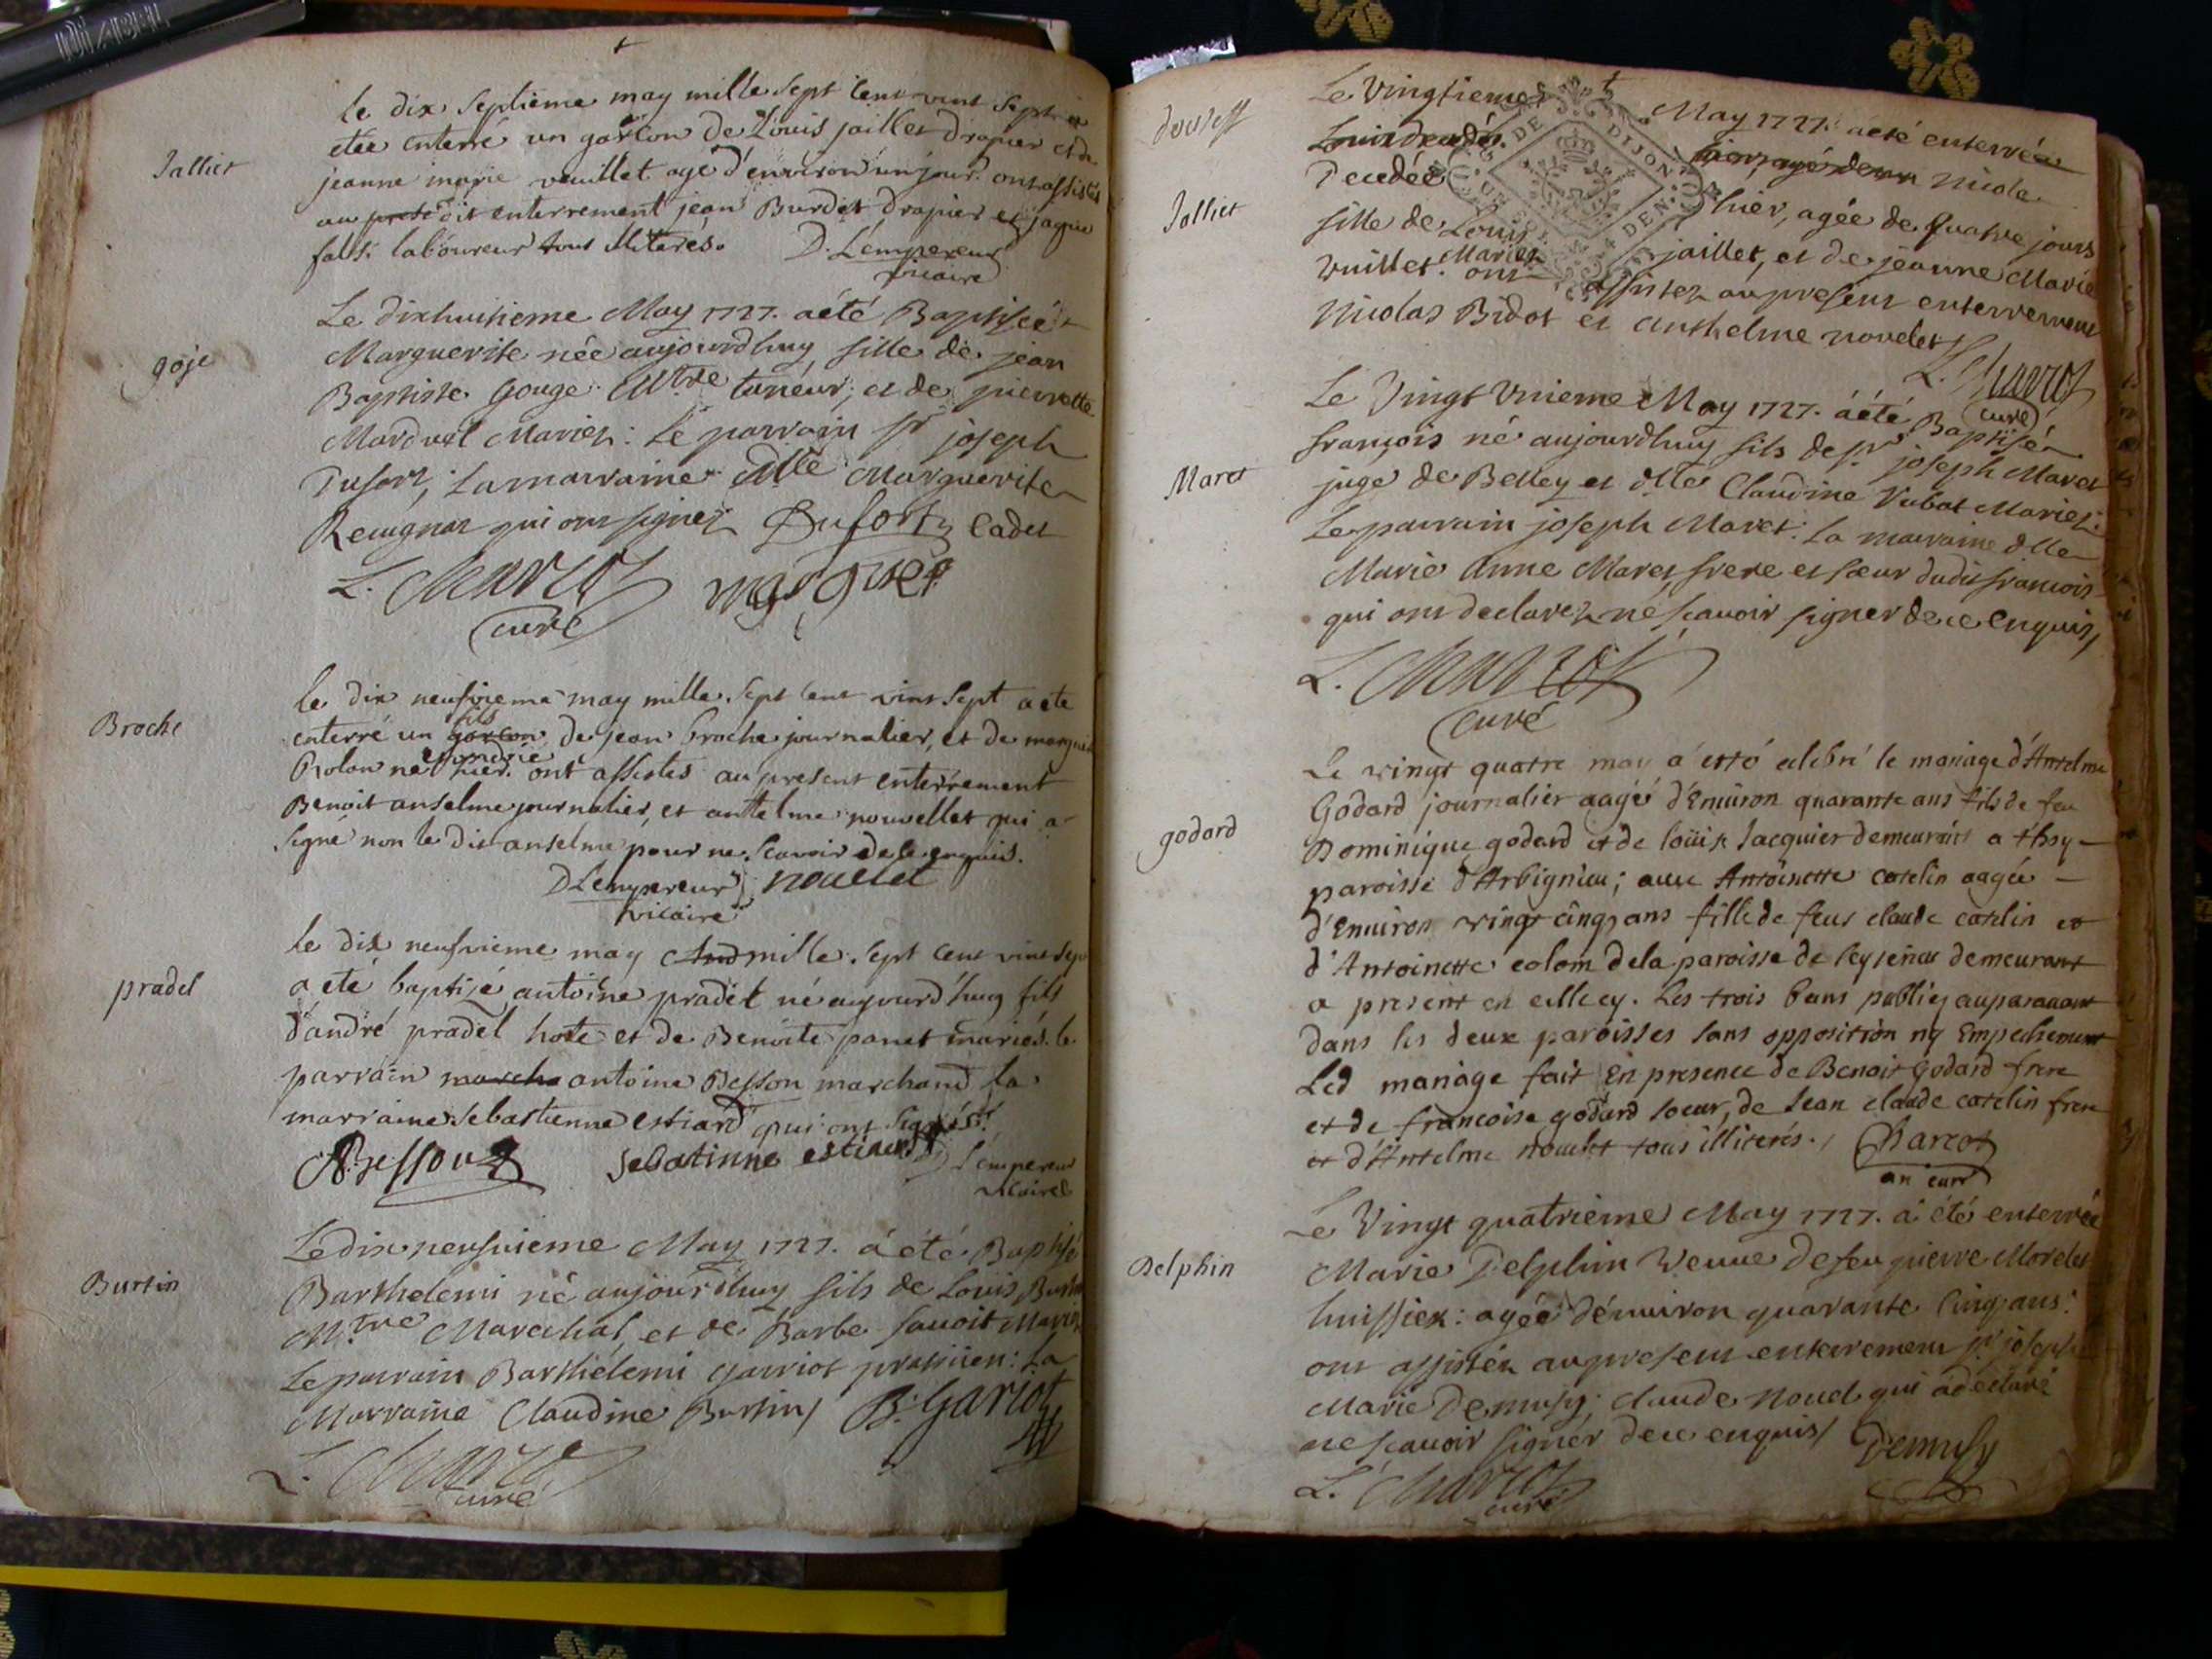 le dix septieme may mille sept cent vint sept a
etee enterré un garcon de Louis jaillet drapier et de
Jalliet
jeanne marie vuillet agé d'environ un jour. ont assistés
au dit enterrement jean Burdet drapier et jaque
laboureur tous illiterés. D. Lempereur
vicaire
Le dixhuitieme May 1727. a été Baptisée
goje
Marguerite née aujourdhuy fille de jean
Baptiste Gouge Mtre taneur; et de pierrette
Marduel Mariez: Le parrain sr joseph
Dufort; La marraine Mlle Marguerite
qui ont signez Dufort Cadet
L. Charcot
curé
le dix neufvieme may mille sept cent vint sept a ete
Broche
enterré un garcon fils de jean broche journalier, et de margueri
Rolon né hier. ont assistés au present enterrement
Benoit anselme journalier, et anthelme nouvellet qui a
signé non le dit anselme pour ne scavoir de ce enquis.
DLempereur nouellet
vicaire
le dix neufvieme may mille sept cent vint sept
pradel
a eté baptisé antoine pradel né aujourd'huy fils
d'andré pradel hote et de Benoite panet mariés. le
parrain antoine Besson marchand la
marraine Sebastienne estiard qui ont signés.
Besson Sebatinne estiard D Lempereur
vicaire
Le dix neufvieme May 1727. a été Baptisé
Burtin
Barthelemi né aujourdhuy fils de Louis Burtin
M.tre Marechal, et de Barbe Mariez
Le parrain Barthélemi garriot praticien: La
Marraine Claudine Burtin/ B. Gariot
L. Charcot
curé
Le Vingtieme May 1727. a eté enterrée
Decedée Nicole
Jalliet
hier, agée de quatre jours
fille de Louis jaillet, et de jeanne Marie
Vuillet Mariez ont assistez au present enterrement
Nicolas Bidot et Anthelme novelet
L. Charcot
curé
Le Vingt Unieme May 1727. a été Baptisé
françois né aujourdhuy fils de sr joseph Maret
Maret
juge de Belley et dlle Claudine Vubat Mariez:
Le parrain joseph Maret: La marraine dlle
Marie Anne Maret, frere et sœur dudit françois
qui ont declarez ne scavoir signer de ce enquis,
L. Charcot
curé
Le vingt quatre may a esté celebré le mariage d'Antelme
Godard journalier aagé d'Enuiron quarante ans fils de feu
godard
Dominique godard et de loüise Jacquier demeurant a thoy
paroisse d'Arbignieu; auec Antoinette catelin aagée
d'Enuiron vingt cinq ans fille de feus claude catelin et
d'Antoinette colom de la paroisse de demeurant
a present en celle cy. Les trois bans publiez auparauant
dans les deux paroisses sans opposition ny Empechement
Led mariage fait En presence de Benoit Godard frere
et de francoise godard soeur, de Jean claude catelin frere
et d'Antelme nouelet tous illiterés. Charcot
an curé
Le Vingt quatrieme May 1727. a été enterrée
Delphin
Marie Delphin Veuve de feu pierre Morelet
huissier: agée d'enuiron quarante Cinq ans:
ont assistez au present enterrement sr joseph
Marie Demusy: claude Nouel qui a déclaré
ne scauoir signer de ce enquis/ Demusy
L. Charcot
curé